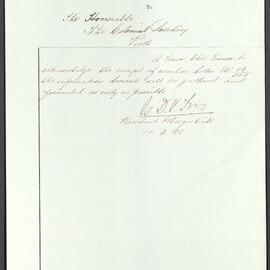 To
The Honorable
The Colonial Secretary
Perth
I have the honor to
acknowledge the receipt of circular letter No
the information desired will be gathered and
forwarded as early as possible
Resident Magistrate